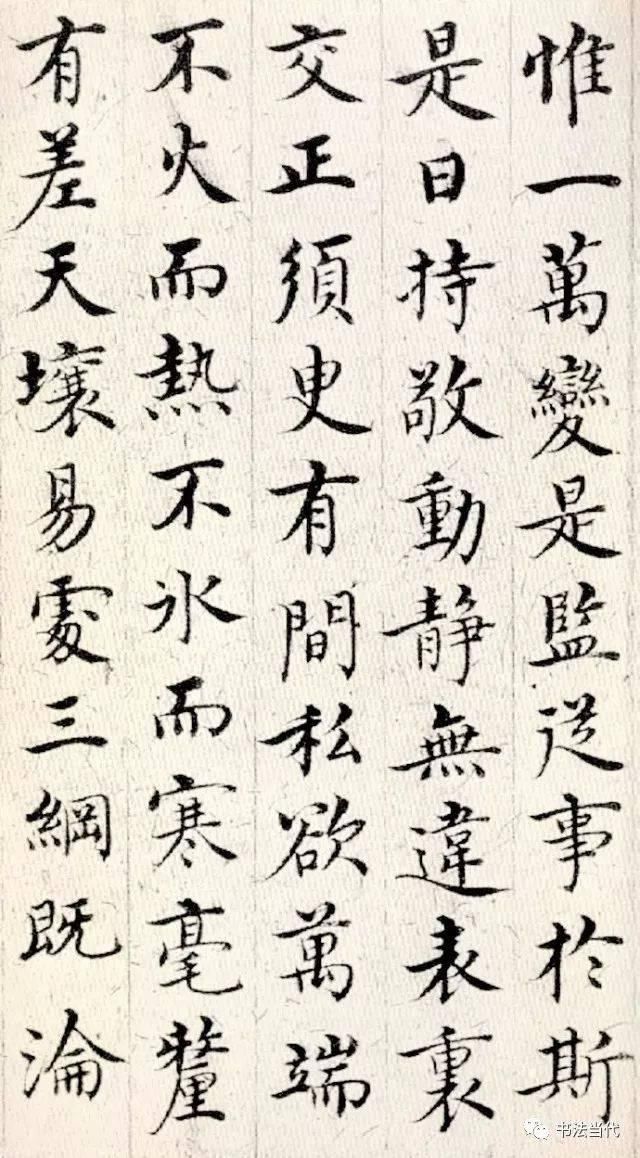 惟一萬變是監從事於斯
是曰持敬動静無違表裏
交正須臾有間私欲萬端
不火而熱不氷而寒毫釐
有差天壤易處三綱既淪
书法当代